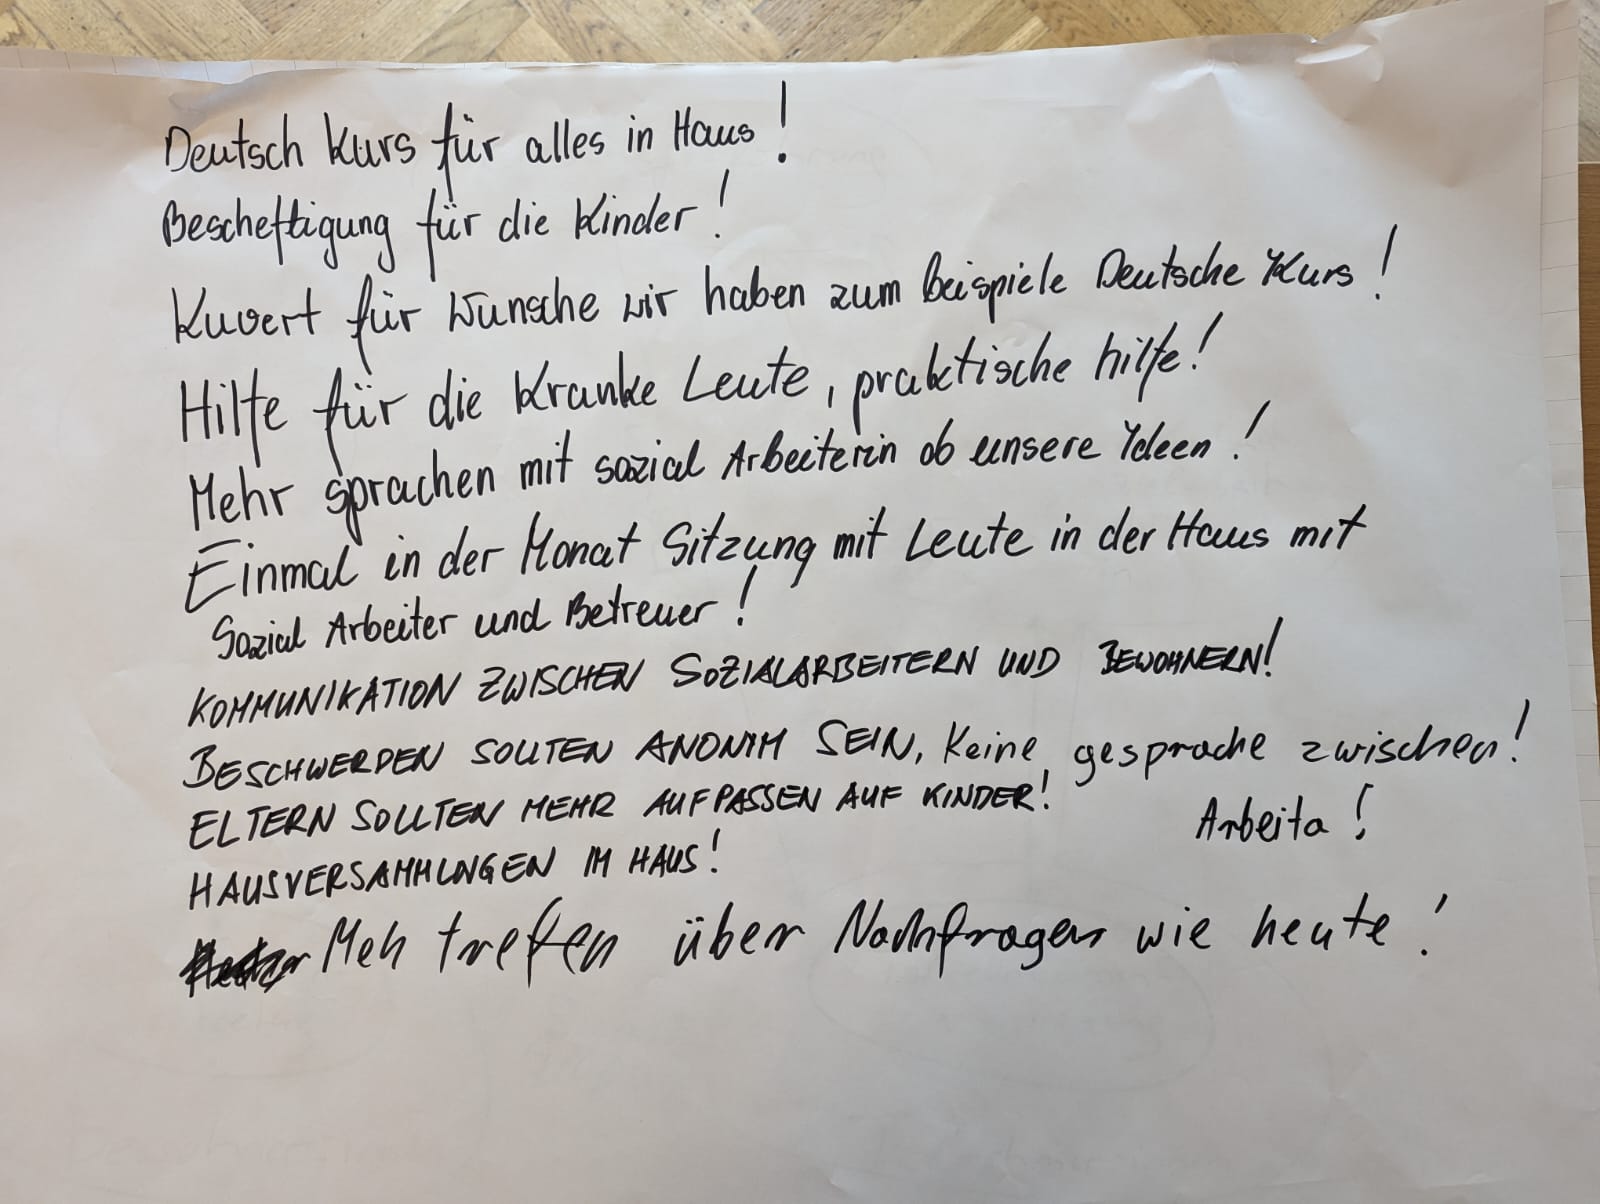 Deutsch Kurs für alles in Haus!
Bescheftigung für die Kinder!
Kuvert für Wunsche wir haben zum Beispiele Deutsche Kurs!
Hilfe für die Kranke Leute, praktische hilfe!
Mehr sprachen mit sozial Arbeiterin ob unsere Ideen!
Einmal in der Monat Sitzung mit Leute in der Haus mit
Sozial Arbeiter und Betreuer!
KOMMUNIKATION ZWISCHEN SOZIALARBEITERN UND BEWOHNERN!
BESCHWERDEN SOLLTEN ANONIM SEIN, Keine gesprache zwischen!
Arbeita!
ELTERN SOLLTEN MEHR AUFPASSEN AUF KINDER!
HAUSVERSAMMLUNGEN IM HAUS!
Meh treffen über Nachfragen wie heute!